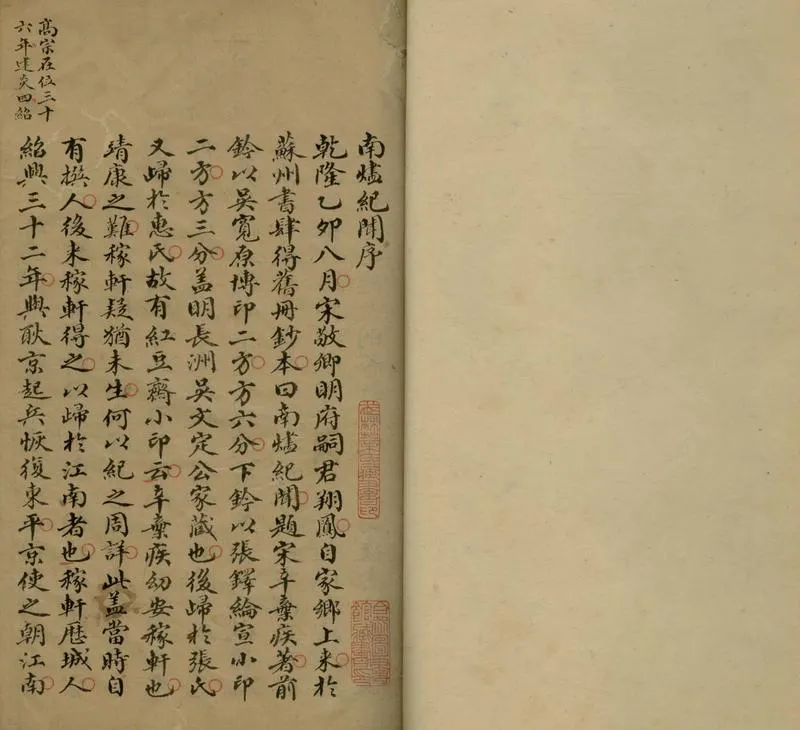 南爐紀聞序
乾隆乙卯八月宋敬卿明府嗣君翔鳳自家鄉上來於
蘇州書肆得舊冊鈔本曰南爐紀聞題宋辛棄疾著前
鈐以吳寬原博印二方方六分下鈐以張鐸綸宣小印
二方方三分盖明長洲吳文定公家藏也後歸於張氏
又歸於惠氏故有紅豆齋小印云辛棄疾幼安稼軒也
靖康之難稼軒疑猶未生何以紀之周詳此盖當時自
有撰人後來稼軒得之以歸於江南者也稼軒歷城人
紹興三十二年與耿京起兵恢復東平京使之朝江南
高宗在位三十
六年建炎四紹